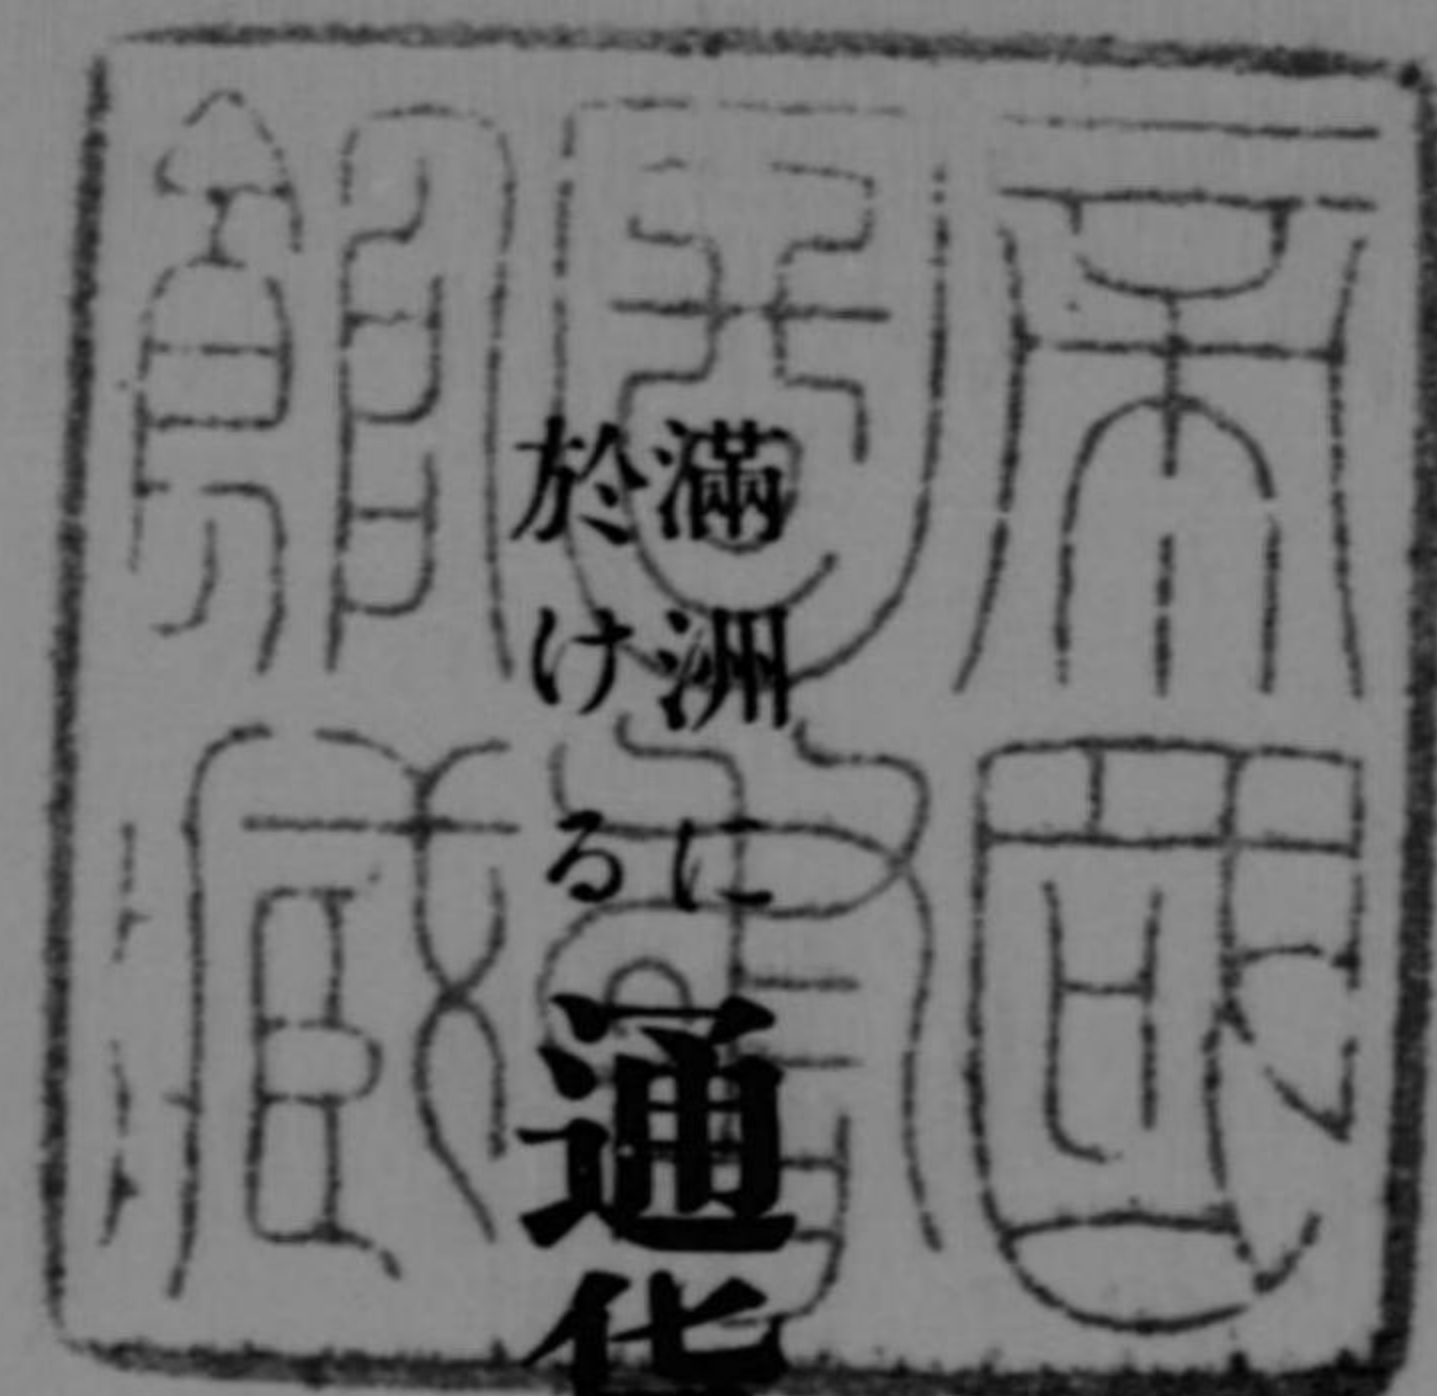 帝國
圖書
館藏
滿洲に
於ける
通化